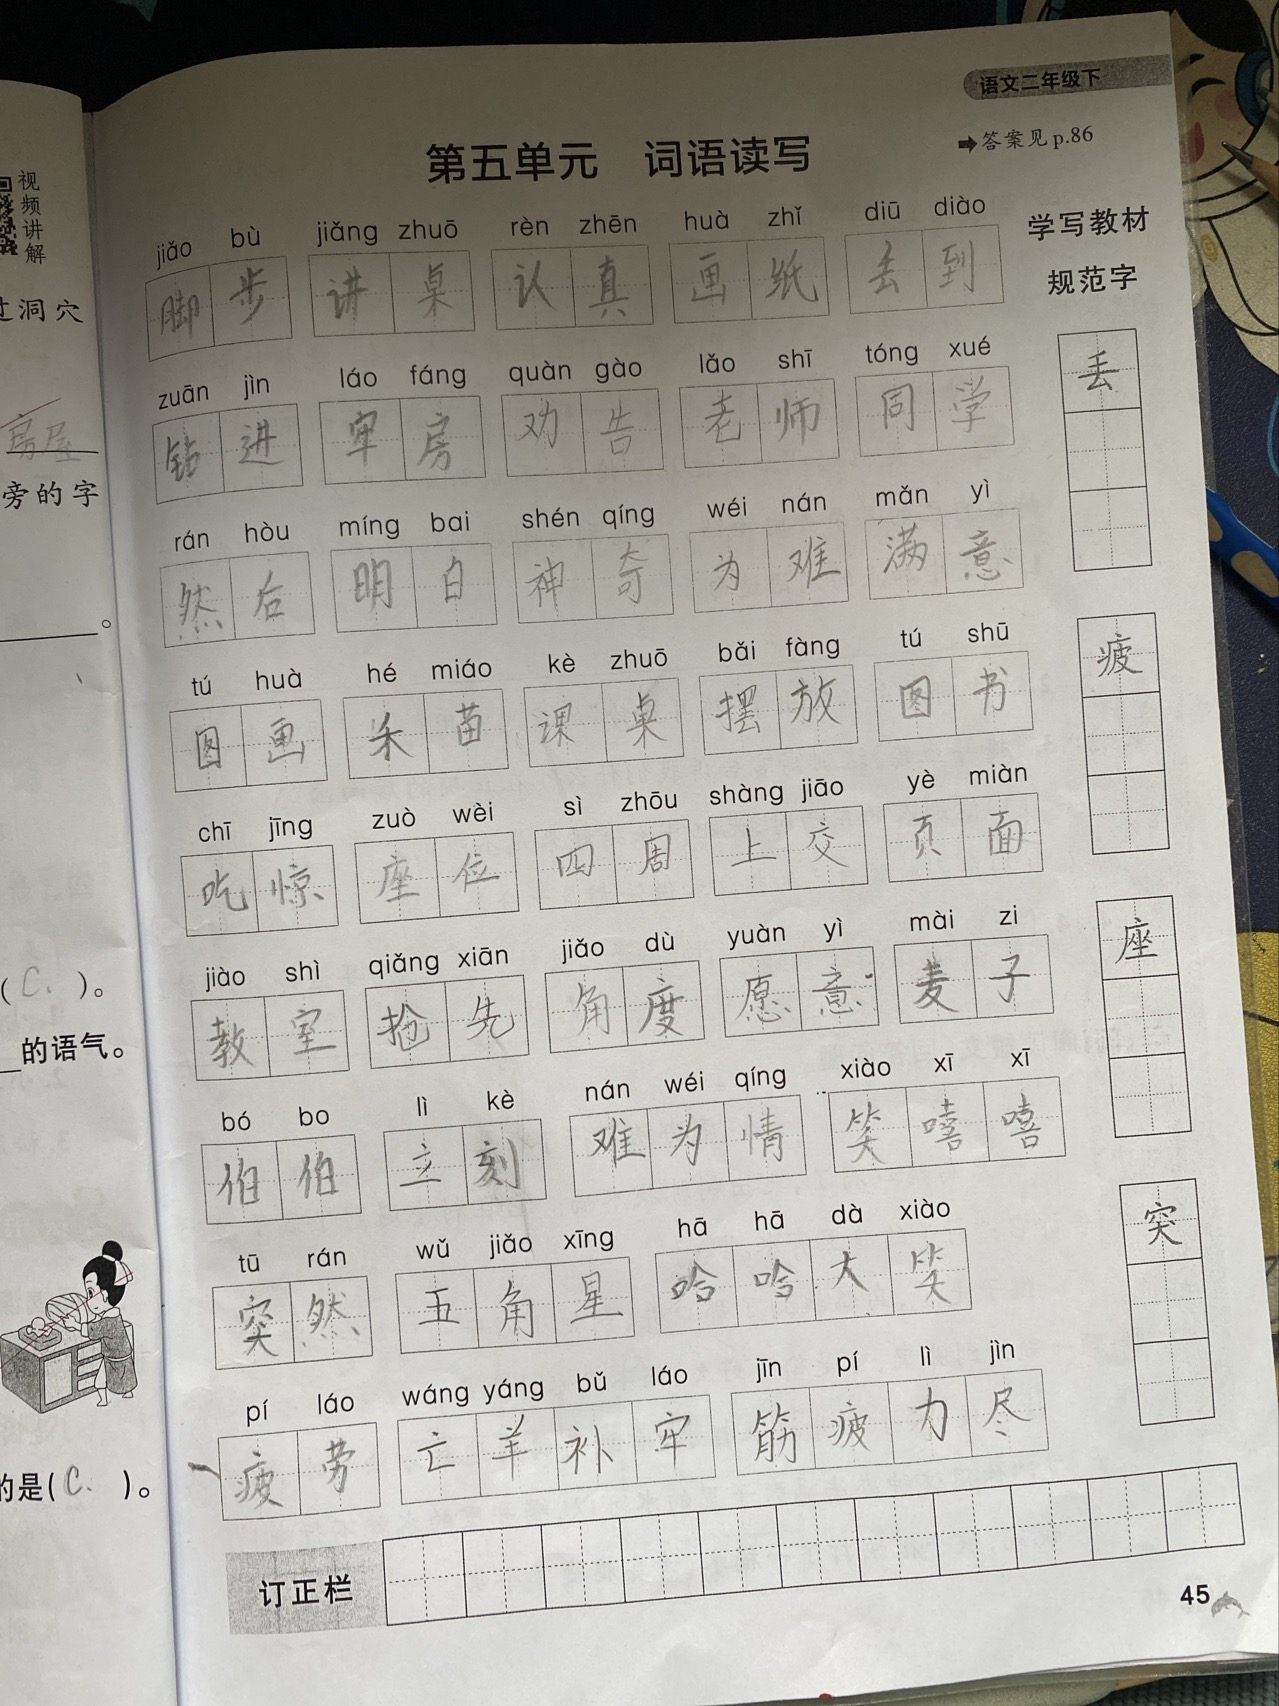 语文二年级下
第五单元 词语读写
➡答案见p.86
视频讲解
jiǎo bù jiǎng zhuō rèn zhēn huà zhǐ diū diào
脚步 讲桌 认真 画纸 丢到
学写教材
规范字
zuān jìn láo fáng quàn gào lǎo shī tóng xué
钻进 牢房 劝告 老师 同学
丢
rán hòu míng bai shén qíng wéi nán mǎn yì
然后 明白 神奇 为难 满意
tú huà hé miáo kè zhuō bǎi fàng tú shū
图画 禾苗 课桌 摆放 图书
疲
chī jīng zuò wèi sì zhōu shàng jiāo yè miàn
吃惊 座位 四周 上交 页面
jiào shì qiǎng xiān jiǎo dù yuàn yì mài zi
教室 抢先 角度 愿意 麦子
座
bó bo lì kè nán wéi qíng xiào xī xī
伯伯 立刻 难为情 笑嘻嘻
tū rán wǔ jiǎo xīng hā hā dà xiào
突然 五角星 哈哈大笑
突
pí láo wáng yáng bǔ láo jīn pí lì jìn
疲劳 亡羊补牢 筋疲力尽
订正栏
45
过洞穴
房屋
旁的字
。
( C. )。
的语气。
的是( C. )。